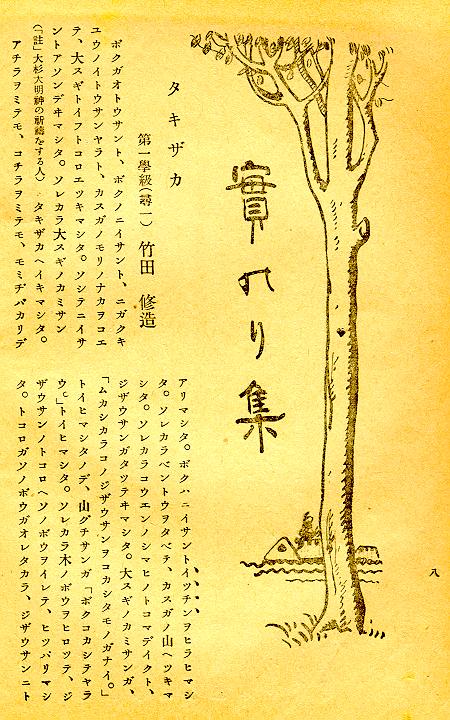 實のり集
タキザカ
第一學級(尋一) 竹田 修造
ボクガオトウサント、ボクノニイサント、ニガクキ
ユウノイトウサンヤラト、カスガノモリノナカヲコエ
テ、大スギトイフトコロエツキマシタ。ソシテニイサ
ントアソンデヰマシタ。ソレカラ大スギノカミサン
(「註」大杉大明神の祈禱をする人)タキザカヘイキマシタ。
アチラヲミテモ、コチラヲミテモ、モミヂバカリデ
アリマシタ。ボクハニイサントイツチンヲヒラヒマシ
タ。ソレカラベントウヲタベテ、カスガノ山ヘツキマ
シタ。ソレカラコウエンノシマヒノトコマデイクト、
ジザウサンガタツテヰマシタ。大スギノカミサンガ、
「ムカシカラコノジザウサンヲコカシタモノガナイ。」
トイヒマシタノデ、山グチサンガ「ボクコカシテヤラ
ウ。」トイヒマシタ。ソレカラ木ノボウヲヒロツテ、ジ
ザウサンノトコロヘソノボウヲイレテ、ヒツパリマシ
タ。トコロガソノボウガオレタカラ、ジザウサンニト
八